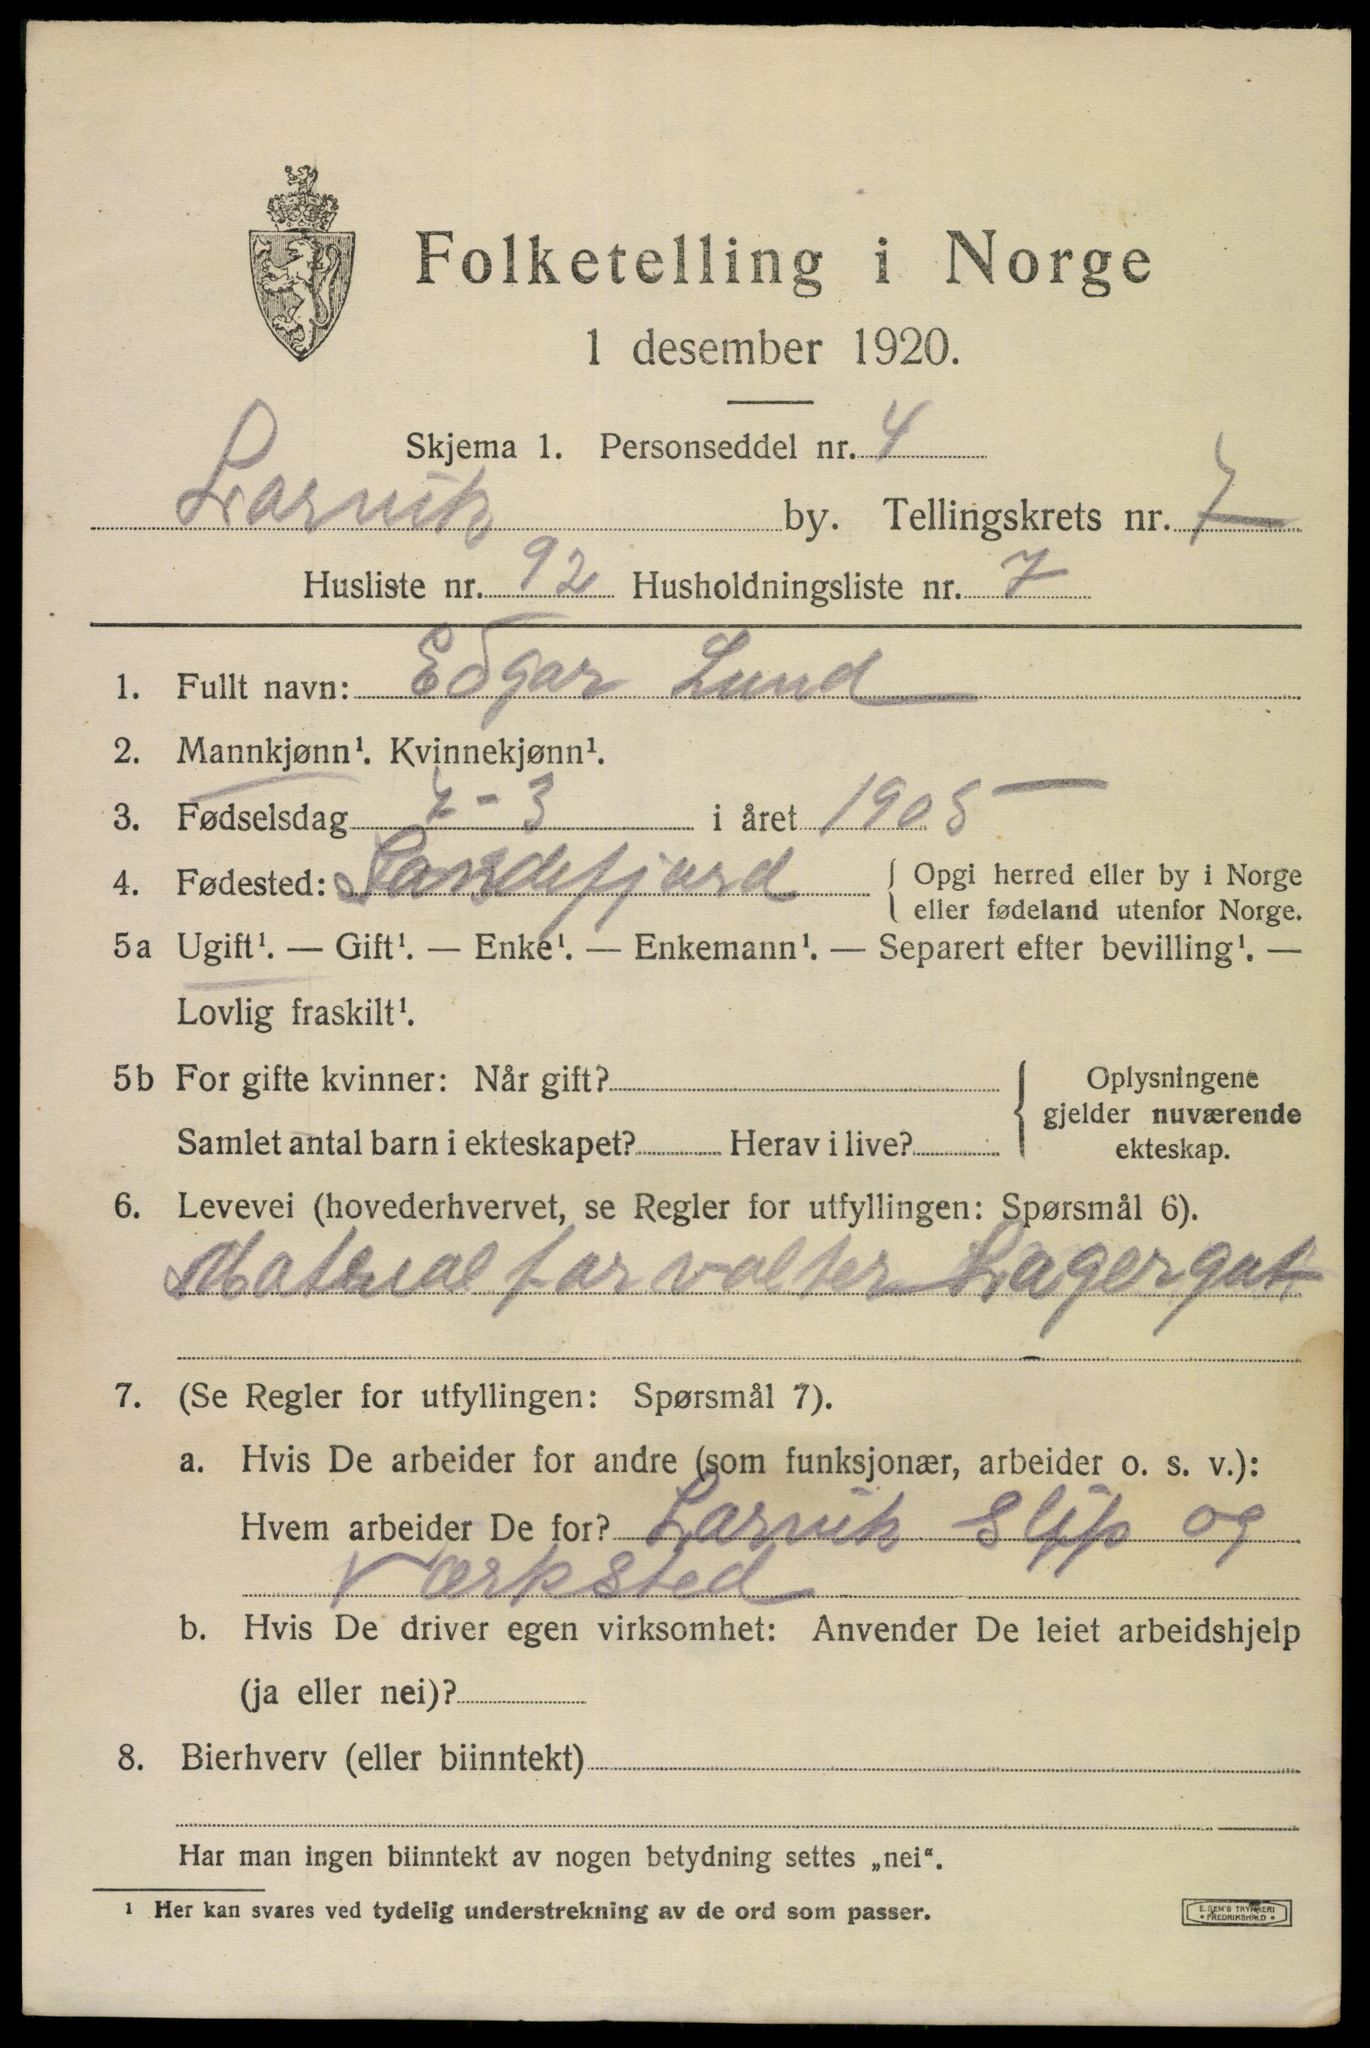 Folketelling i Norge
1 desember 1920.
Skjema 1. Personseddel nr. 4
Larvik by. Tellingskrets nr. 7
Husliste nr. 92 Husholdningsliste nr. 7
1. Fullt navn: Edgar Lund
2. Mannkjønn¹. Kvinnekjønn¹.
3. Fødselsdag 7-3 i året 1905
4. Fødested: Sandefjord { Opgi herred eller by i Norge
eller fødeland utenfor Norge.
5a Ugift¹. — Gift¹. — Enke¹. — Enkemann¹. — Separert efter bevilling¹. —
Lovlig fraskilt¹.
5b For gifte kvinner: Når gift? } Oplysningene
gjelder nuværende
Samlet antal barn i ekteskapet? Herav i live? ekteskap.
6. Levevei (hovederhvervet, se Regler for utfyllingen: Spørsmål 6).
Material forvalter Lagergut
7. (Se Regler for utfyllingen: Spørsmål 7).
a. Hvis De arbeider for andre (som funksjonær, arbeider o. s. v.):
Hvem arbeider De for? Larvik Slip og
Værksted
b. Hvis De driver egen virksomhet: Anvender De leiet arbeidshjelp
(ja eller nei)?
8. Bierhverv (eller biinntekt)
Har man ingen biinntekt av nogen betydning settes „nei“.
¹ Her kan svares ved tydelig understrekning av de ord som passer.
E. SEM'S TRYKKERI
FREDRIKSHALD